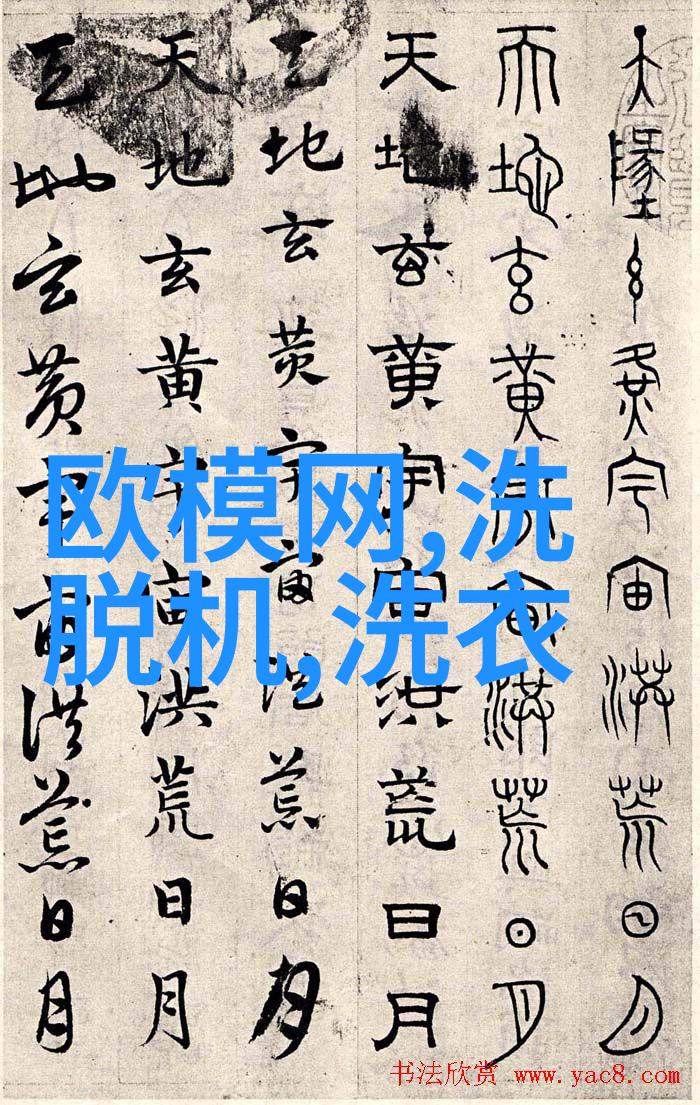 天墬玄黄宇宙洪荒日月
天地玄黄宇宙洪荒日月
天地玄黄宇宙洪荒日月
天地玄黄宇宙洪荒日月
天地玄黄宇宙洪荒日月
天地玄黄宇宙洪荒日月
欧模网,洗
脱机,洗衣
书法欣赏 www.yac8.com